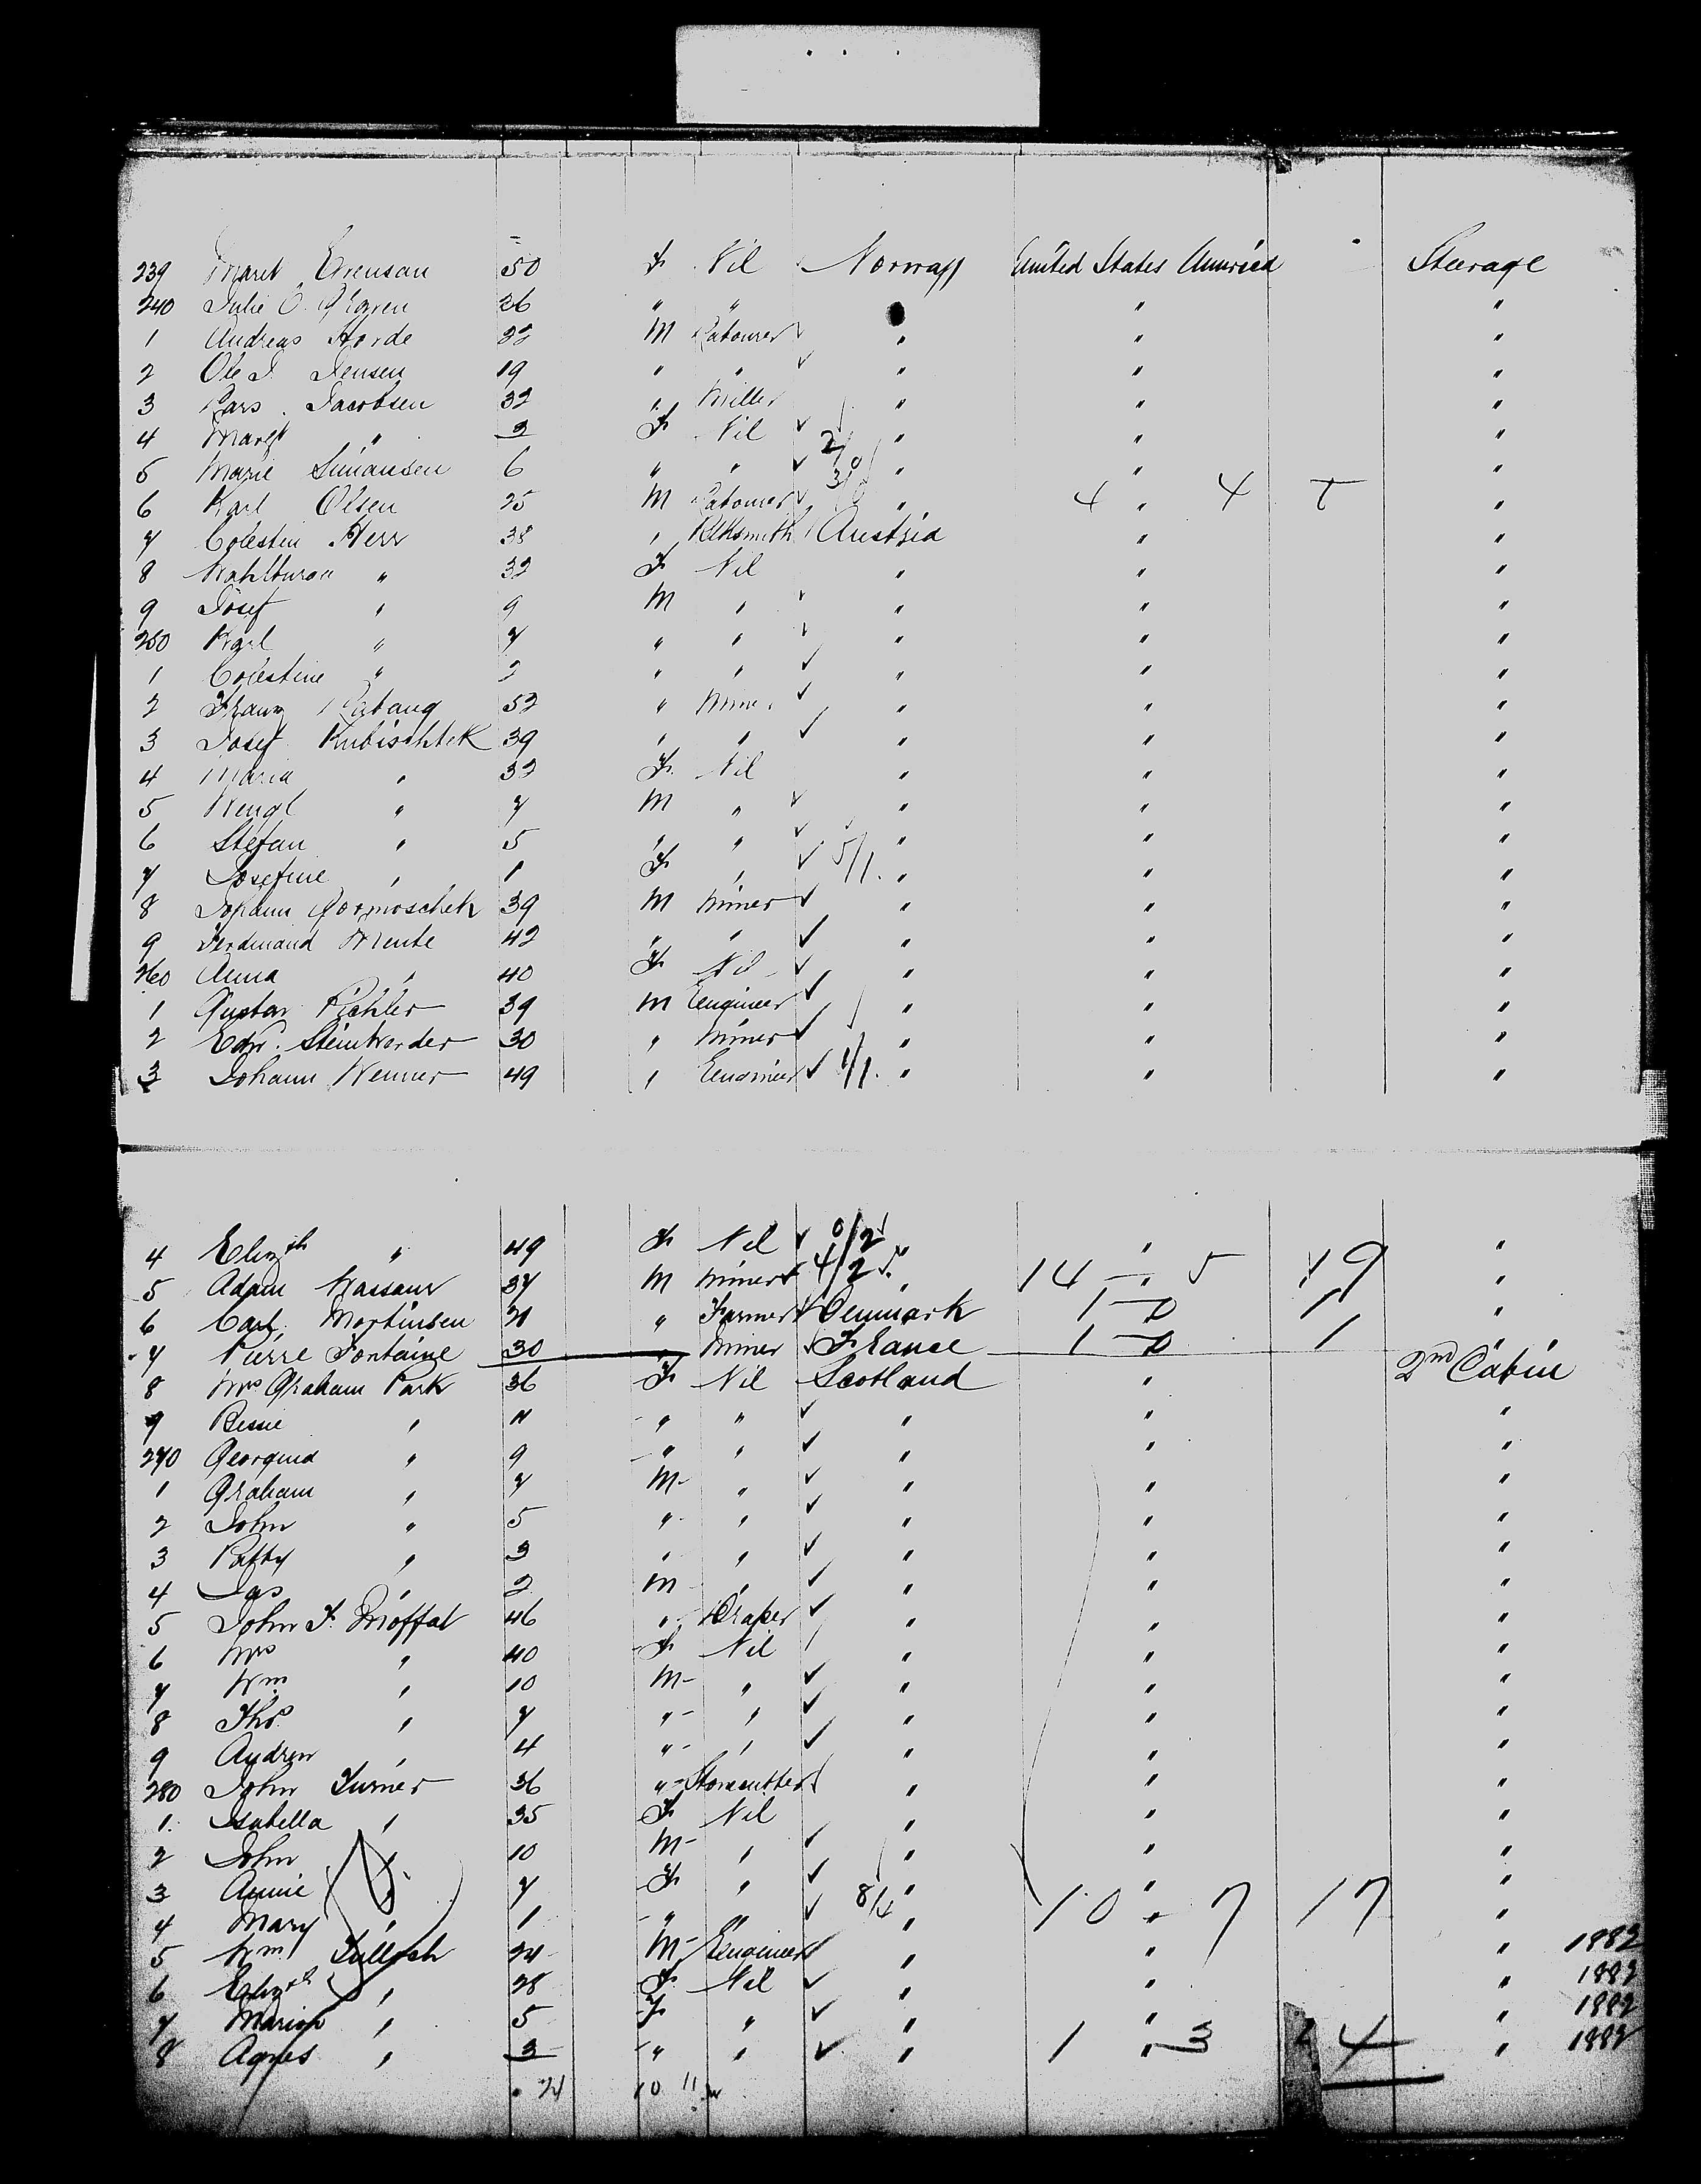 239 Marit Evenson 50 F Nil Norway United States America Steerage
240 Julie O. 26 " " " " "
1 Andreas Horde 22 M Labourer " " "
2 Ole J. Jensen 19 " " " " "
3 Lars Jacobsen 32 " Miller " " "
4 Margt " 3 F Nil " " "
5 Marie Simansen 6 " " " " "
6 Karl Olsen 25 M Labourer " 4 " 4 "
7 Colestin Herr 38 " Blksmith Austria " "
8 " 32 F Nil " " "
9 Josef " 9 M " " " "
250 Karl " 7 " " " " "
1 Colestine " 2 " " " " "
2 Franz 52 " Miner " " "
3 Josef Kubischtek 39 " " " " "
4 Maria " 32 F Nil " " "
5 Wenzl " 7 M " " " "
6 Stefan " 5 " " " " "
7 Josefine " 1 F " 5/1. " " "
8 Johann 39 M Miner " " "
9 Ferdinand Wente 42 " " " " "
260 Anna " 40 F Nil " " "
1 Gustav Pichler 39 M Engineer " " "
2 Edw. 30 " Miner " " "
3 Johann Wenner 49 " Engineer 1/1. " " "
4 Elizth " 49 F Nil 0/2 " "
5 Adam 37 M Miner 4/2 " 14 - " 5 19 "
6 Carl Martinsen 21 " Farmer Denmark 1 - 0 1 "
7 Pierre Fontaine 30 " Miner France 1 - 0 1 "
8 Mrs Graham Park 36 F Nil Scotland " 2nd Cabin
9 Bessie " 11 " " " " "
270 Georgina " 9 " " " " "
1 Graham " 7 M " " " "
2 John " 5 " " " " "
3 " 3 " " " " "
4 Jas " 2 M " " " "
5 John F. Moffat 46 " Draper " " "
6 Mrs " 40 F Nil " " "
7 Wm " 10 M " " " "
8 Thos " 7 " " " " "
9 Andrew " 4 " " " " "
280 John Turner 36 " Stonecutter " " "
1 Isabella " 35 F Nil " " "
2 John " 10 M " " " "
3 Annie " 7 F " " " "
4 Mary " 1 " " 8/4 " 10 " 7 17 "
5 Wm Tulloch 24 M Engineer " " " 1882
6 Elizth " 28 F Nil " " " 1882
7 Marion " 5 F " " " " 1882
8 Agnes " 3 " " " 1 " 3 4 " 1882
24 10 11